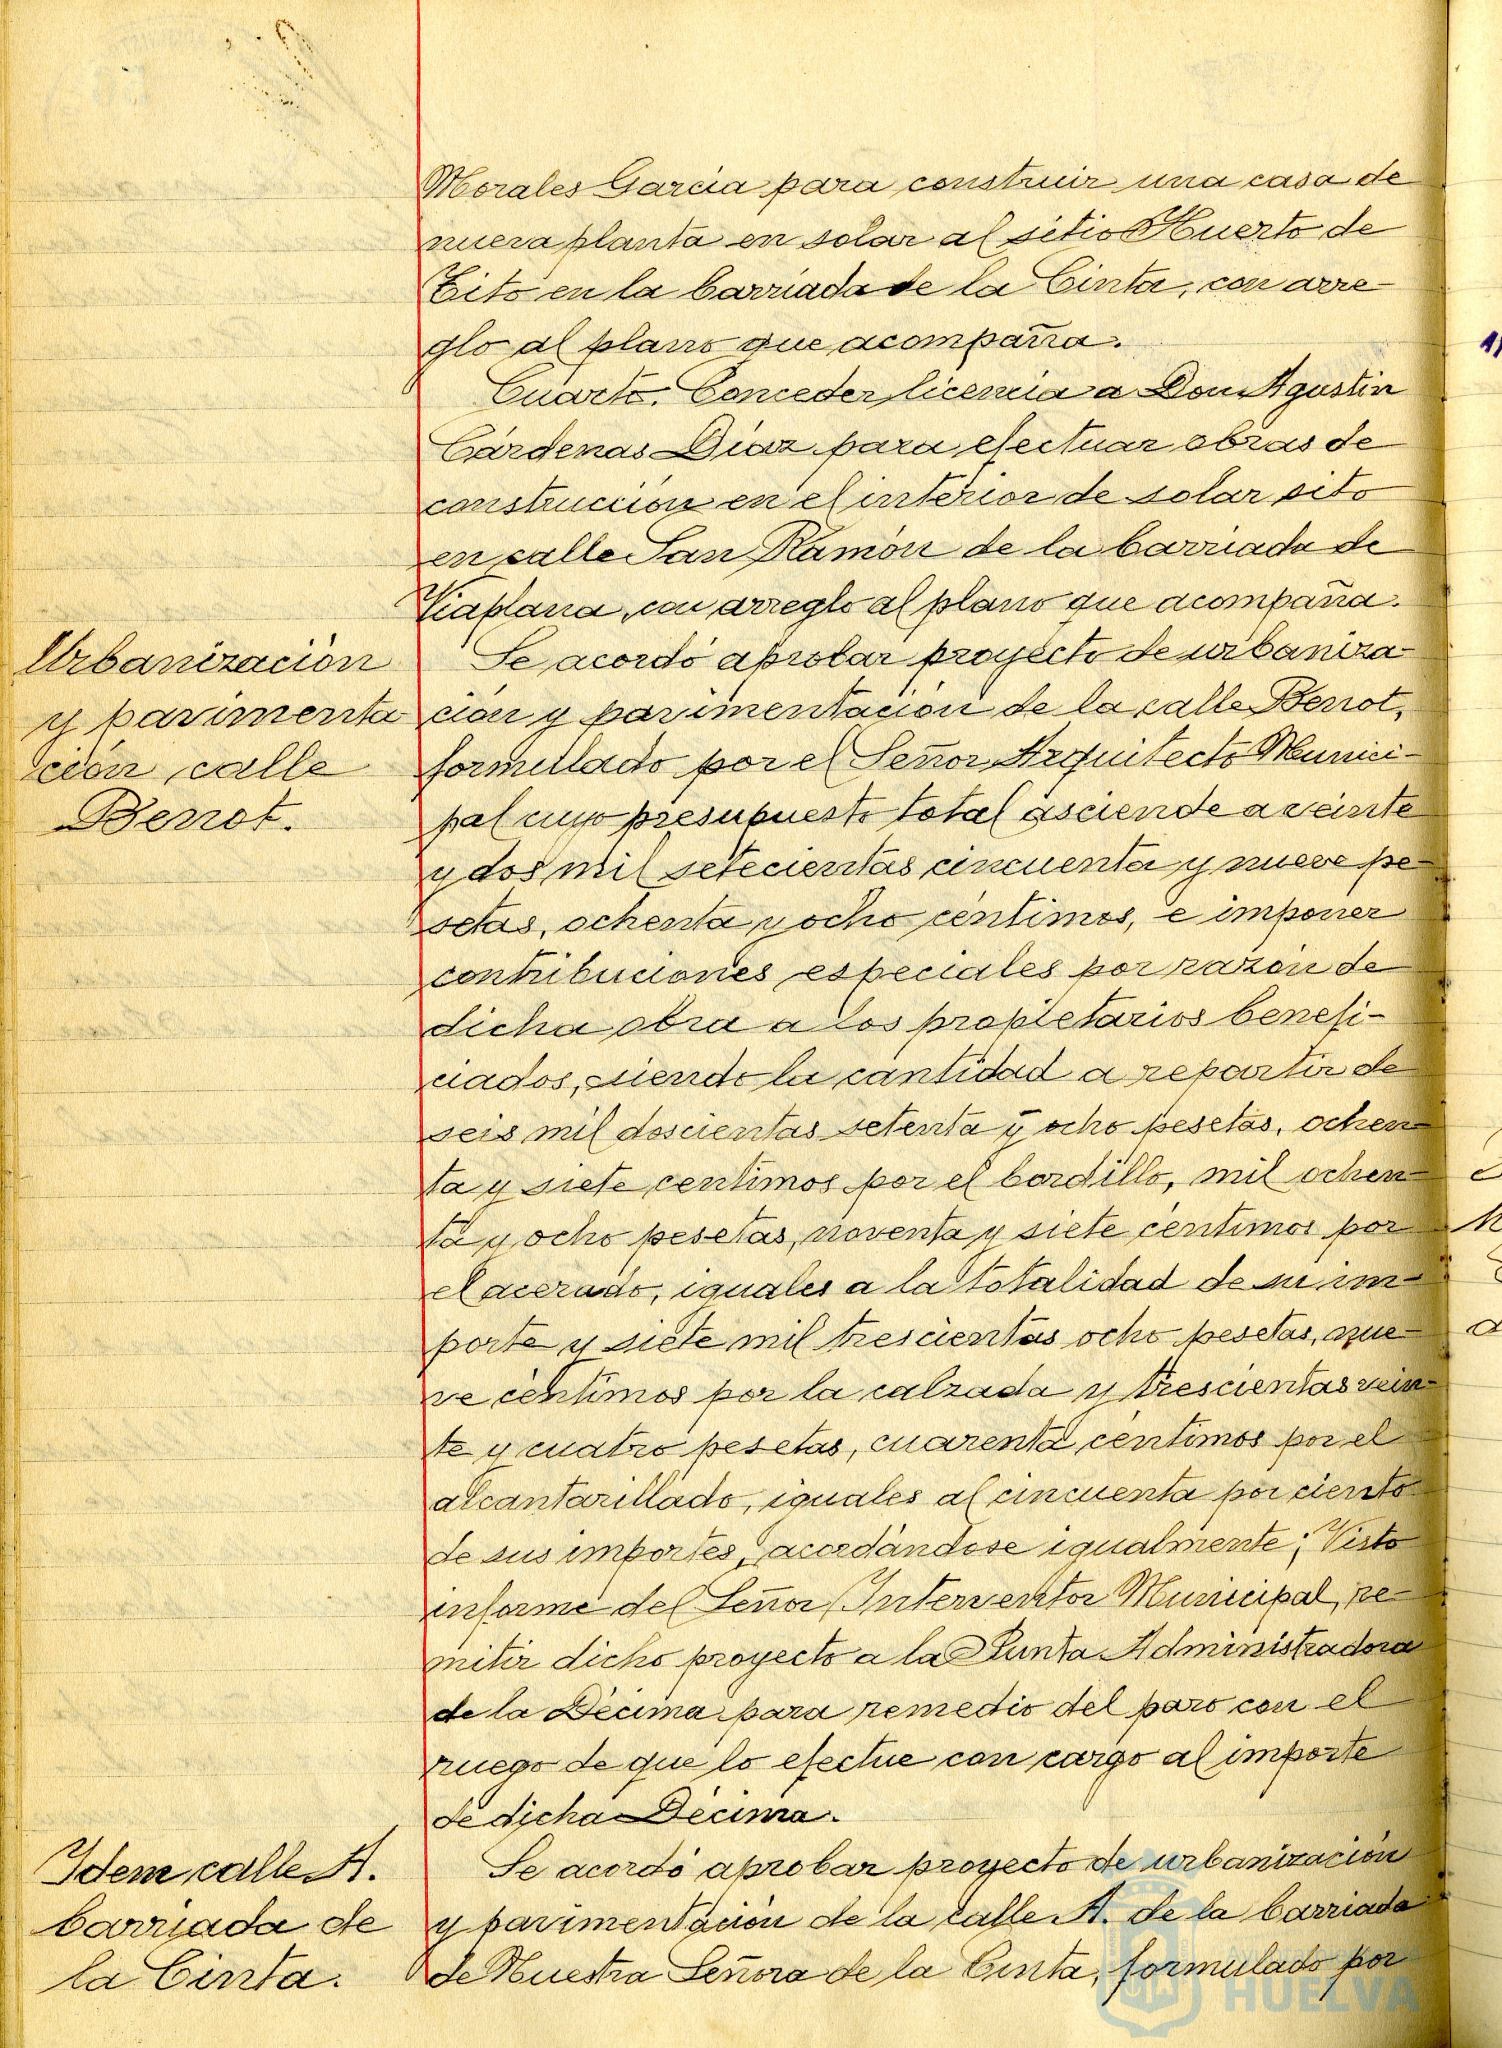 Morales Garcia para construir una casa de
nueva planta en solar al sitio Huerto de
Tito en la barriada de la Cinta, con arre-
glo al plano que acompaña.
Cuarto. Conceder licencia a Don Agustin
Cárdenas Diaz para efectuar obras de
construcción en el interior de solar sito
en calle San Ramón de la barriada de
Viaplana, con arreglo al plano que acompaña.
Urbanización
y pavimenta
ción calle
Benot.
Se acordó aprobar proyecto de urbaniza-
ción y pavimentación de la calle Benot,
formulado por el Señor Arquitecto Munici-
pal cuyo presupuesto total asciende a veinte
y dos mil setecientas cincuenta y nueve pe-
setas, ochenta y ocho céntimos, e imponer
contribuciones especiales por razón de
dicha obra a los propietarios benefi-
ciados, siendo la cantidad a repartir de
seis mil doscientas setenta y ocho pesetas, ochen-
ta y siete centimos por el bordillo, mil ochen-
ta y ocho pesetas, noventa y siete céntimos por
el acerado, iguales a la totalidad de su im-
porte y siete mil trescientas ocho pesetas, nue-
ve céntimos por la calzada y trescientas vein-
te y cuatro pesetas, cuarenta céntimos por el
alcantarillado, iguales al cincuenta por ciento
de sus importes, acordándose igualmente; Visto
informe del Señor Interventor Municipal, re-
mitir dicho proyecto a la Junta Administradora
de la Décima para remedio del paro con el
ruego de que lo efectue con cargo al importe
de dicha Décima.
Idem calle A.
barriada de
la Cinta.
Se acordó aprobar proyecto de urbanización
y pavimentación de la calle A. de la barriada
de Nuestra Señora de la Cinta, formulado por
HUELVA